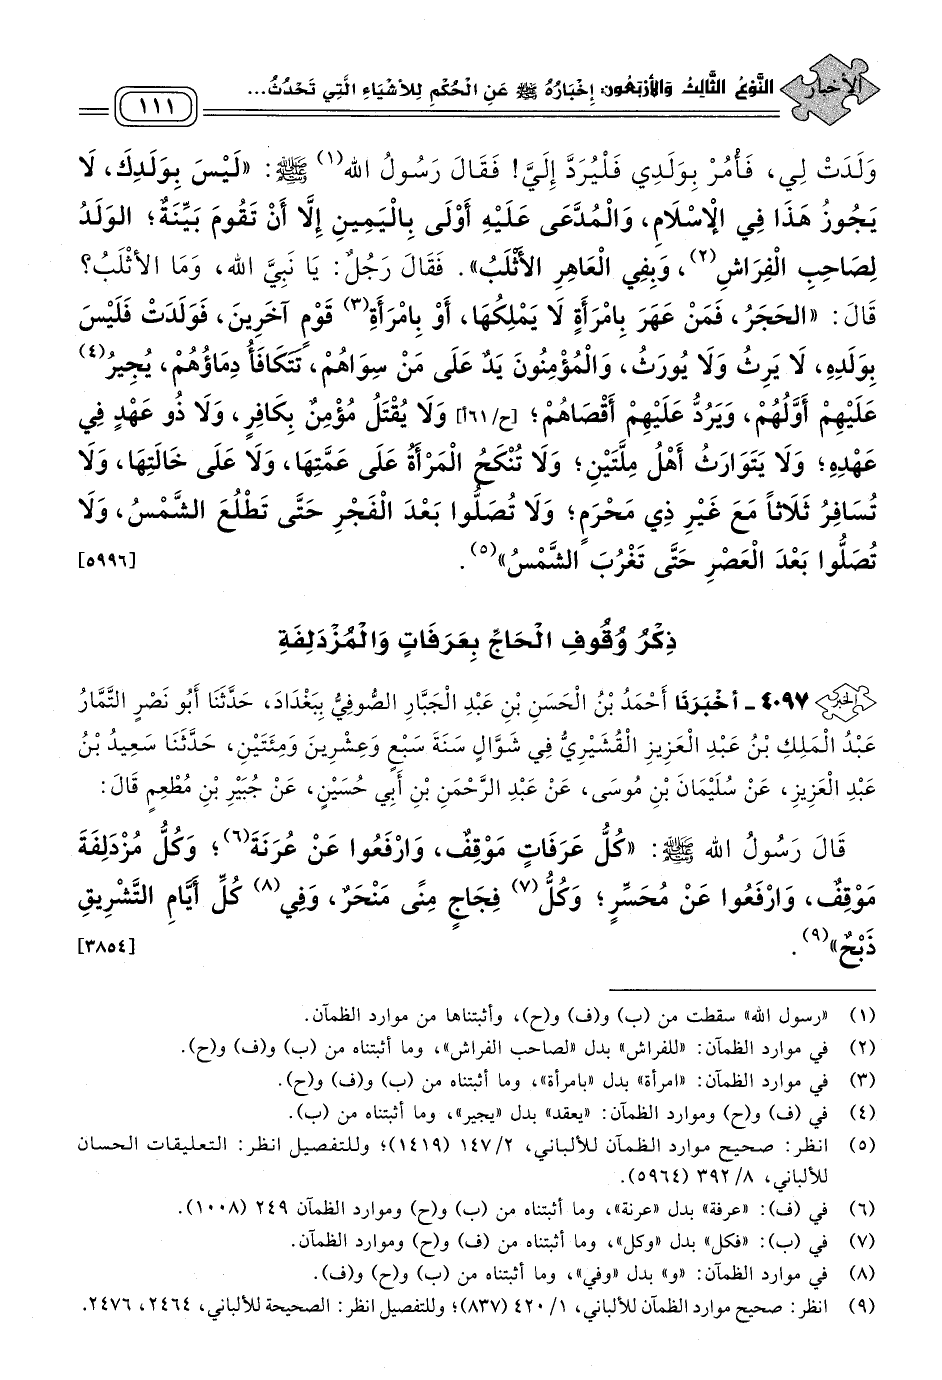 الأخبار
النَّوْعُ الثَّالِثُ وَالأَرْبَعُونَ: إِخْبَارُهُ ﷺ عَنِ الْحُكْمِ لِلأَشْيَاءِ الَّتِي تَحْدُثُ...
١١١
وَلَدَتْ لِي، فَأْمُرْ بِوَلَدِي فَلْيُرَدَّ إِلَيَّ! فَقَالَ رَسُولُ اللهِ(١) ﷺ: «لَيْسَ بِوَلَدِكَ، لَا
يَجُوزُ هَذَا فِي الإِسْلَامِ، وَالْمُدَّعَى عَلَيْهِ أَوْلَى بِالْيَمِينِ إِلَّا أَنْ تَقُومَ بَيِّنَةٌ؛ الوَلَدُ
لِصَاحِبِ الْفِرَاشِ(٢)، وَبِفِي الْعَاهِرِ الأَثْلَبُ». فَقَالَ رَجُلٌ: يَا نَبِيَّ اللهِ، وَمَا الأَثْلَبُ؟
قَالَ: «الحَجَرُ، فَمَنْ عَهَرَ بِامْرَأَةٍ لَا يَمْلِكُهَا، أَوْ بِامْرَأَةِ(٣) قَوْمٍ آخَرِينَ، فَوَلَدَتْ فَلَيْسَ
بِوَلَدِهِ، لَا يَرِثُ وَلَا يُورَثُ، وَالْمُؤْمِنُونَ يَدٌ عَلَى مَنْ سِوَاهُمْ، تَتَكَافَأُ دِمَاؤُهُمْ، يُجِيرُ(٤)
عَلَيْهِمْ أَوَّلُهُمْ، وَيَرُدُّ عَلَيْهِمْ أَقْصَاهُمْ؛ [ح/٦١أ] وَلَا يُقْتَلُ مُؤْمِنٌ بِكَافِرٍ، وَلَا ذُو عَهْدٍ فِي
عَهْدِهِ؛ وَلَا يَتَوَارَثُ أَهْلُ مِلَّتَيْنِ؛ وَلَا تُنْكَحُ الْمَرْأَةُ عَلَى عَمَّتِهَا، وَلَا عَلَى خَالَتِهَا، وَلَا
تُسَافِرُ ثَلَاثاً مَعَ غَيْرِ ذِي مَحْرَمٍ؛ وَلَا تُصَلُّوا بَعْدَ الْفَجْرِ حَتَّى تَطْلُعَ الشَّمْسُ، وَلَا
تُصَلُّوا بَعْدَ الْعَصْرِ حَتَّى تَغْرُبَ الشَّمْسُ»(٥). [٥٩٩٦]
ذِكْرُ وُقُوفِ الْحَاجِّ بِعَرَفَاتٍ وَالْمُزْدَلِفَةِ
الخبر ٤٠٩٧ - أَخْبَرَنَا أَحْمَدُ بْنُ الْحَسَنِ بْنِ عَبْدِ الْجَبَّارِ الصُّوفِيُّ بِبَغْدَادَ، حَدَّثَنَا أَبُو نَصْرٍ التَّمَّارُ
عَبْدُ الْمَلِكِ بْنُ عَبْدِ الْعَزِيزِ الْقُشَيْرِيُّ فِي شَوَّالٍ سَنَةَ سَبْعٍ وَعِشْرِينَ وَمِئَتَيْنِ، حَدَّثَنَا سَعِيدُ بْنُ
عَبْدِ الْعَزِيزِ، عَنْ سُلَيْمَانَ بْنِ مُوسَى، عَنْ عَبْدِ الرَّحْمَنِ بْنِ أَبِي حُسَيْنٍ، عَنْ جُبَيْرِ بْنِ مُطْعِمٍ قَالَ:
قَالَ رَسُولُ اللهِ ﷺ: «كُلُّ عَرَفَاتٍ مَوْقِفٌ، وَارْفَعُوا عَنْ عُرَنَةَ(٦)؛ وَكُلُّ مُزْدَلِفَةَ
مَوْقِفٌ، وَارْفَعُوا عَنْ مُحَسِّرٍ؛ وَكُلُّ(٧) فِجَاجِ مِنًى مَنْحَرٌ، وَفِي(٨) كُلِّ أَيَّامِ التَّشْرِيقِ
ذَبْحٌ»(٩). [٣٨٥٤]
(١) «رسول الله» سقطت من (ب) و(ف) و(ح)، وأثبتناها من موارد الظمآن.
(٢) في موارد الظمآن: «للفراش» بدل «لصاحب الفراش»، وما أثبتناه من (ب) و(ف) و(ح).
(٣) في موارد الظمآن: «امرأة» بدل «بامرأة»، وما أثبتناه من (ب) و(ف) و(ح).
(٤) في (ف) و(ح) وموارد الظمآن: «يعقد» بدل «يجير»، وما أثبتناه من (ب).
(٥) انظر: صحيح موارد الظمآن للألباني، ١٤٧/٢ (١٤١٩)؛ وللتفصيل انظر: التعليقات الحسان
للألباني، ٣٩٢/٨ (٥٩٦٤).
(٦) في (ف): «عرفة» بدل «عرنة»، وما أثبتناه من (ب) و(ح) وموارد الظمآن ٢٤٩ (١٠٠٨).
(٧) في (ب): «فكل» بدل «وكل»، وما أثبتناه من (ف) و(ح) وموارد الظمآن.
(٨) في موارد الظمآن: «و» بدل «وفي»، وما أثبتناه من (ب) و(ح) و(ف).
(٩) انظر: صحيح موارد الظمآن للألباني، ٤٢٠/١ (٨٣٧)؛ وللتفصيل انظر: الصحيحة للألباني، ٢٤٦٤، ٢٤٧٦.